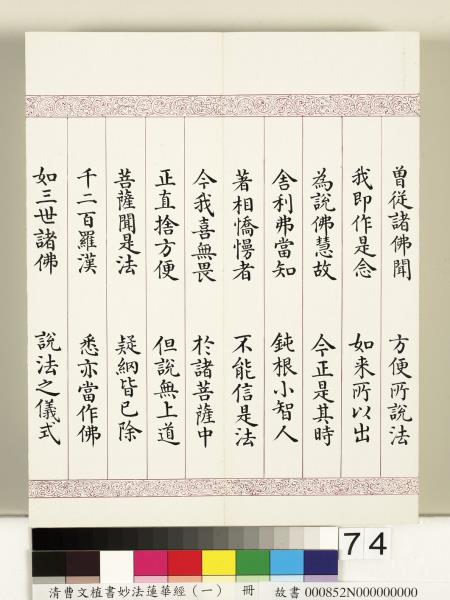 曾從諸佛聞 方便所說法
我即作是念 如来所以出
為說佛慧故 今正是其時
舍利弗當知 鈍根小智人
著相憍慢者 不能信是法
今我喜無畏 於諸菩薩中
正直捨方便 但說無上道
菩薩聞是法 疑網皆已除
千二百羅漢 悉亦當作佛
如三世諸佛 說法之儀式
74
清曹文植書妙法蓮華經(一) 冊 故書 000852N000000000